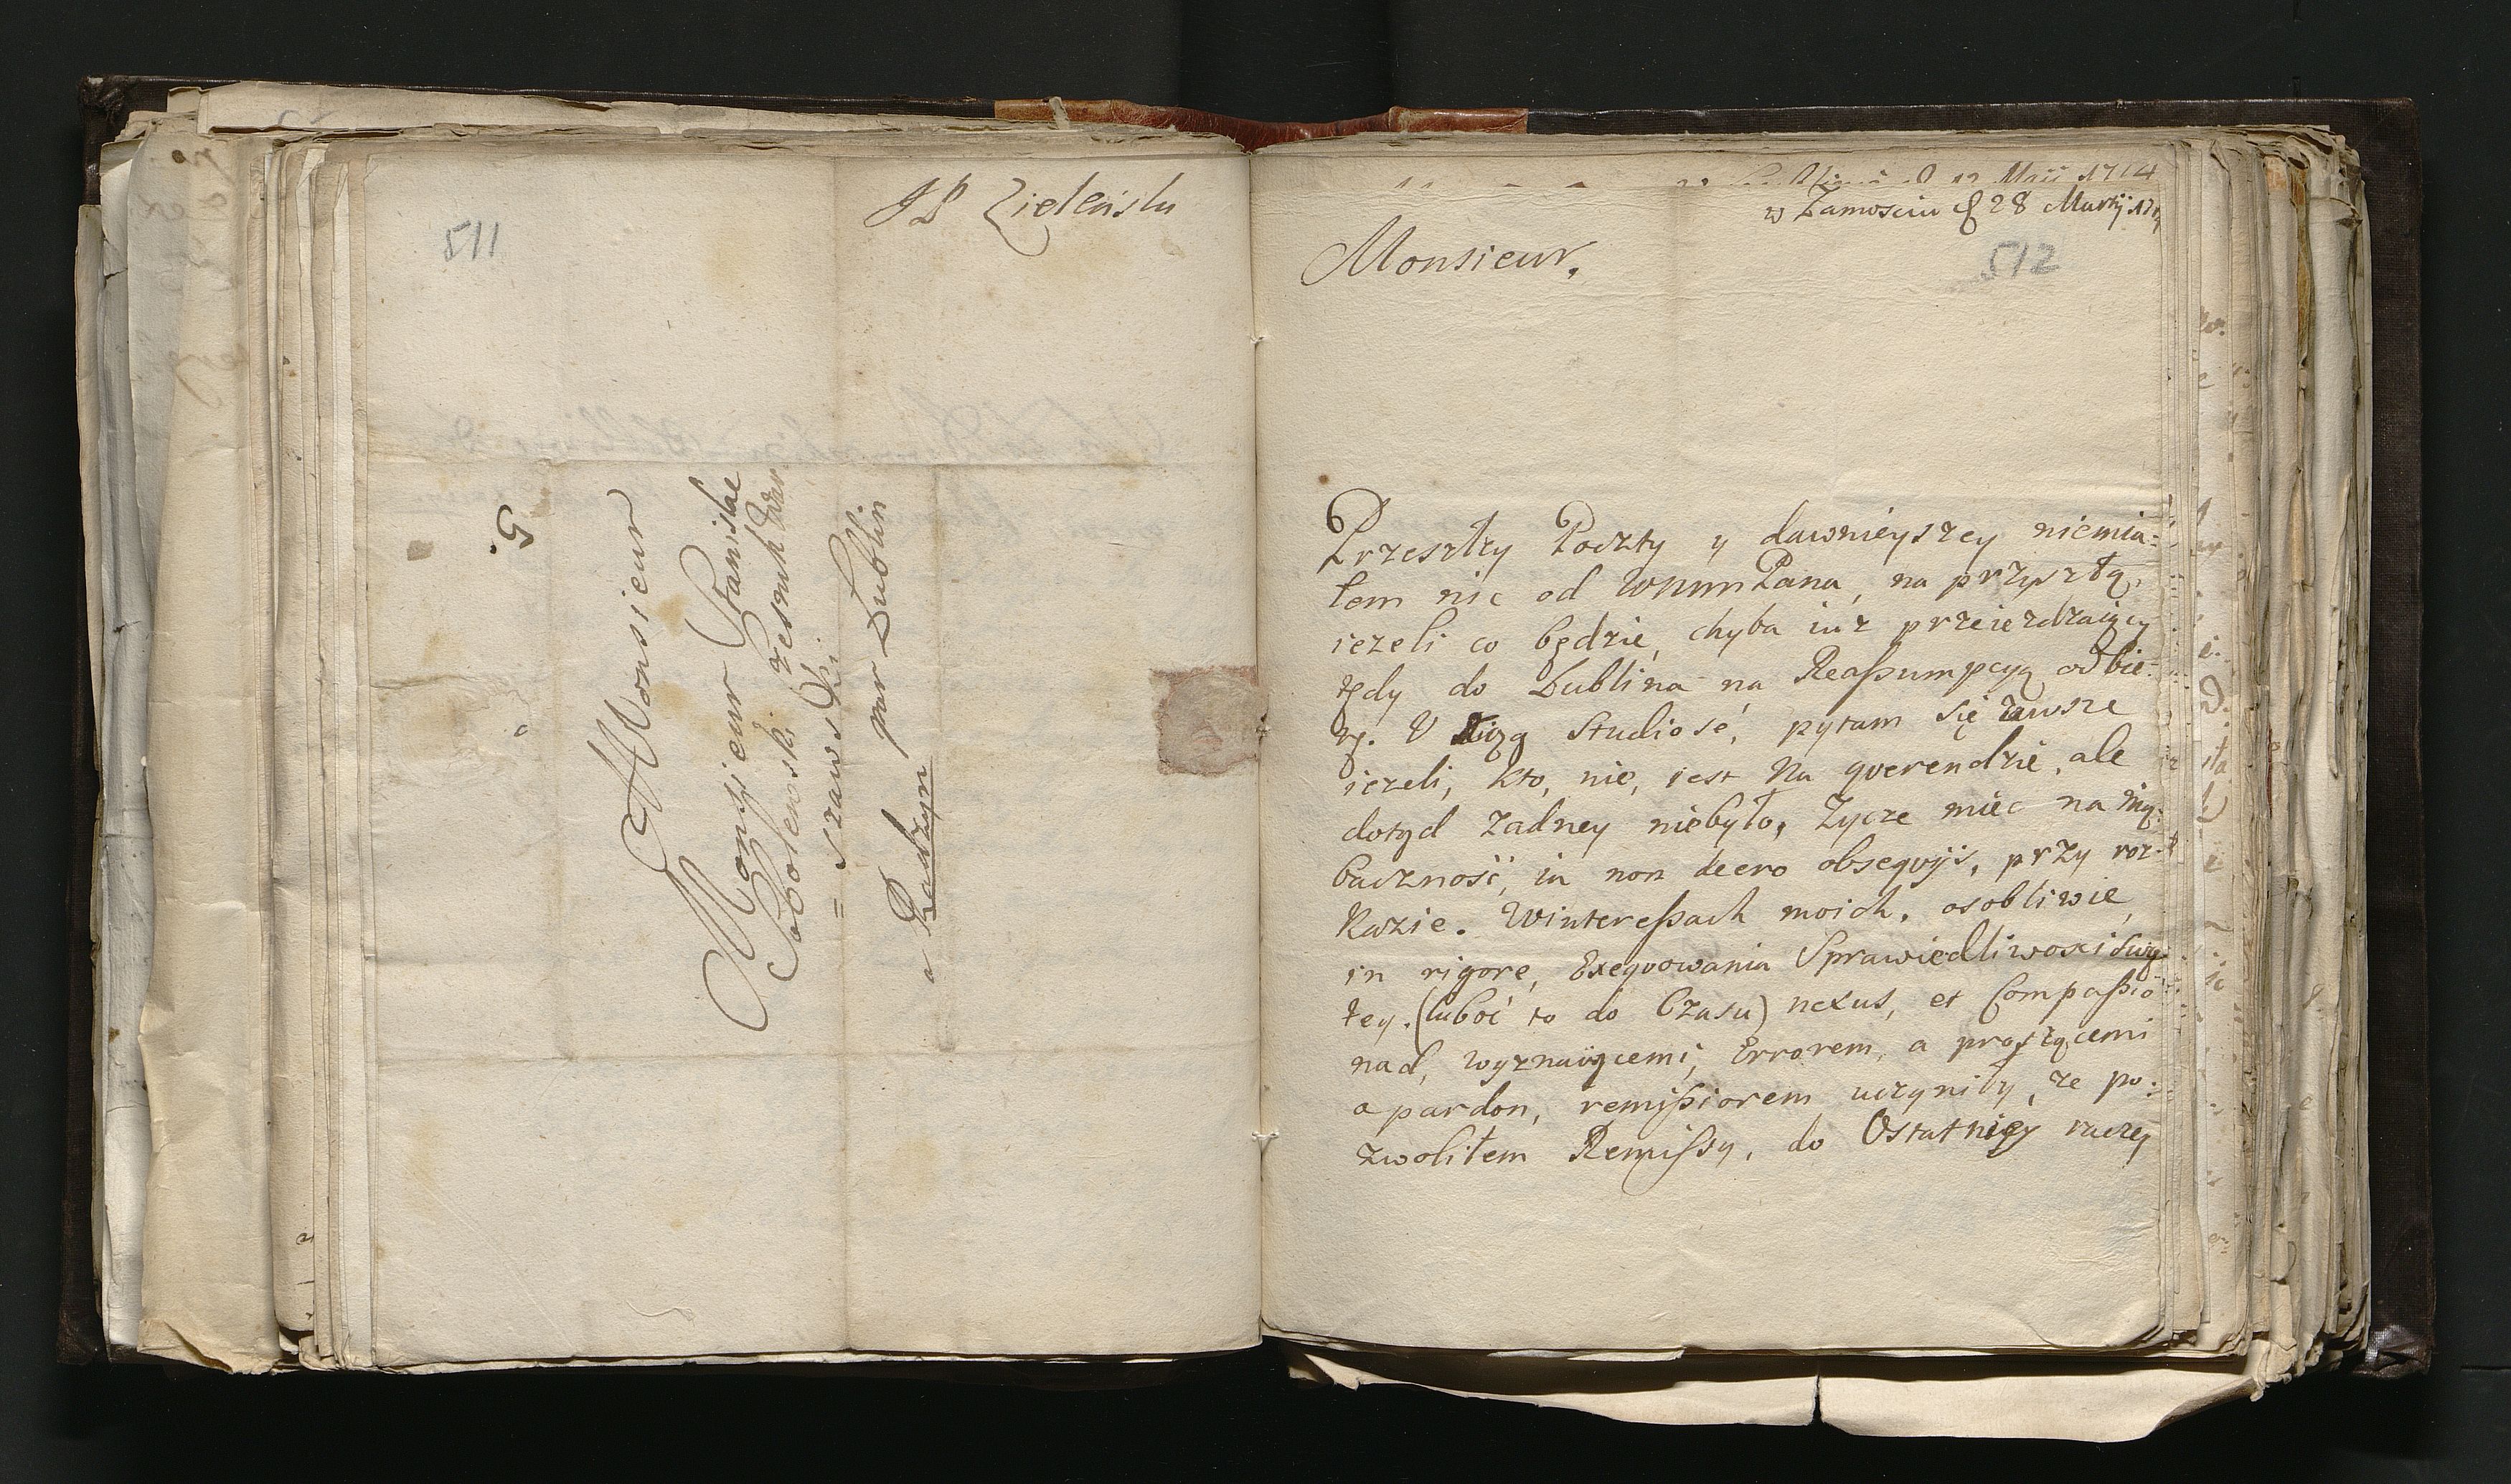 JP Zielenski
511
5.
Monsieur
Monsieur Stanisłae
Sobolewski Czesnik War
= szawski
par Lublin
a Radzyn
Maii 1714
w Zamosciu d 28 Martij
512
Monsieur,
Przeszłey Poczty y dawnieyszey niemia:
łem nic od WMM Pana, na przyszłą,
iezeli co będzie, chyba iuz przeiezdzaiący
tędy do Lublina na Reassumpcyą odbie:
rę. U studiose, pytam się zawsze
iezeli, kto, nie, iest na qverendzie, ale
dotąd zadney niebyło, Zycze miec na nię
bacznosc, ia non deero obseqvijs, przy roz:
kazie. Winteressach moich, osobliwie,
in rigore, Exeqvowania Sprawiedliwosci Swię
tey. (luboć to do Czasu) nexus, et Compassio
nad, wyznaiącemi, Errorem, a proszącemi
o pardon, remissiorem uczyniły, ze po:
zwoliłem Remissy, do Ostatniey raczey